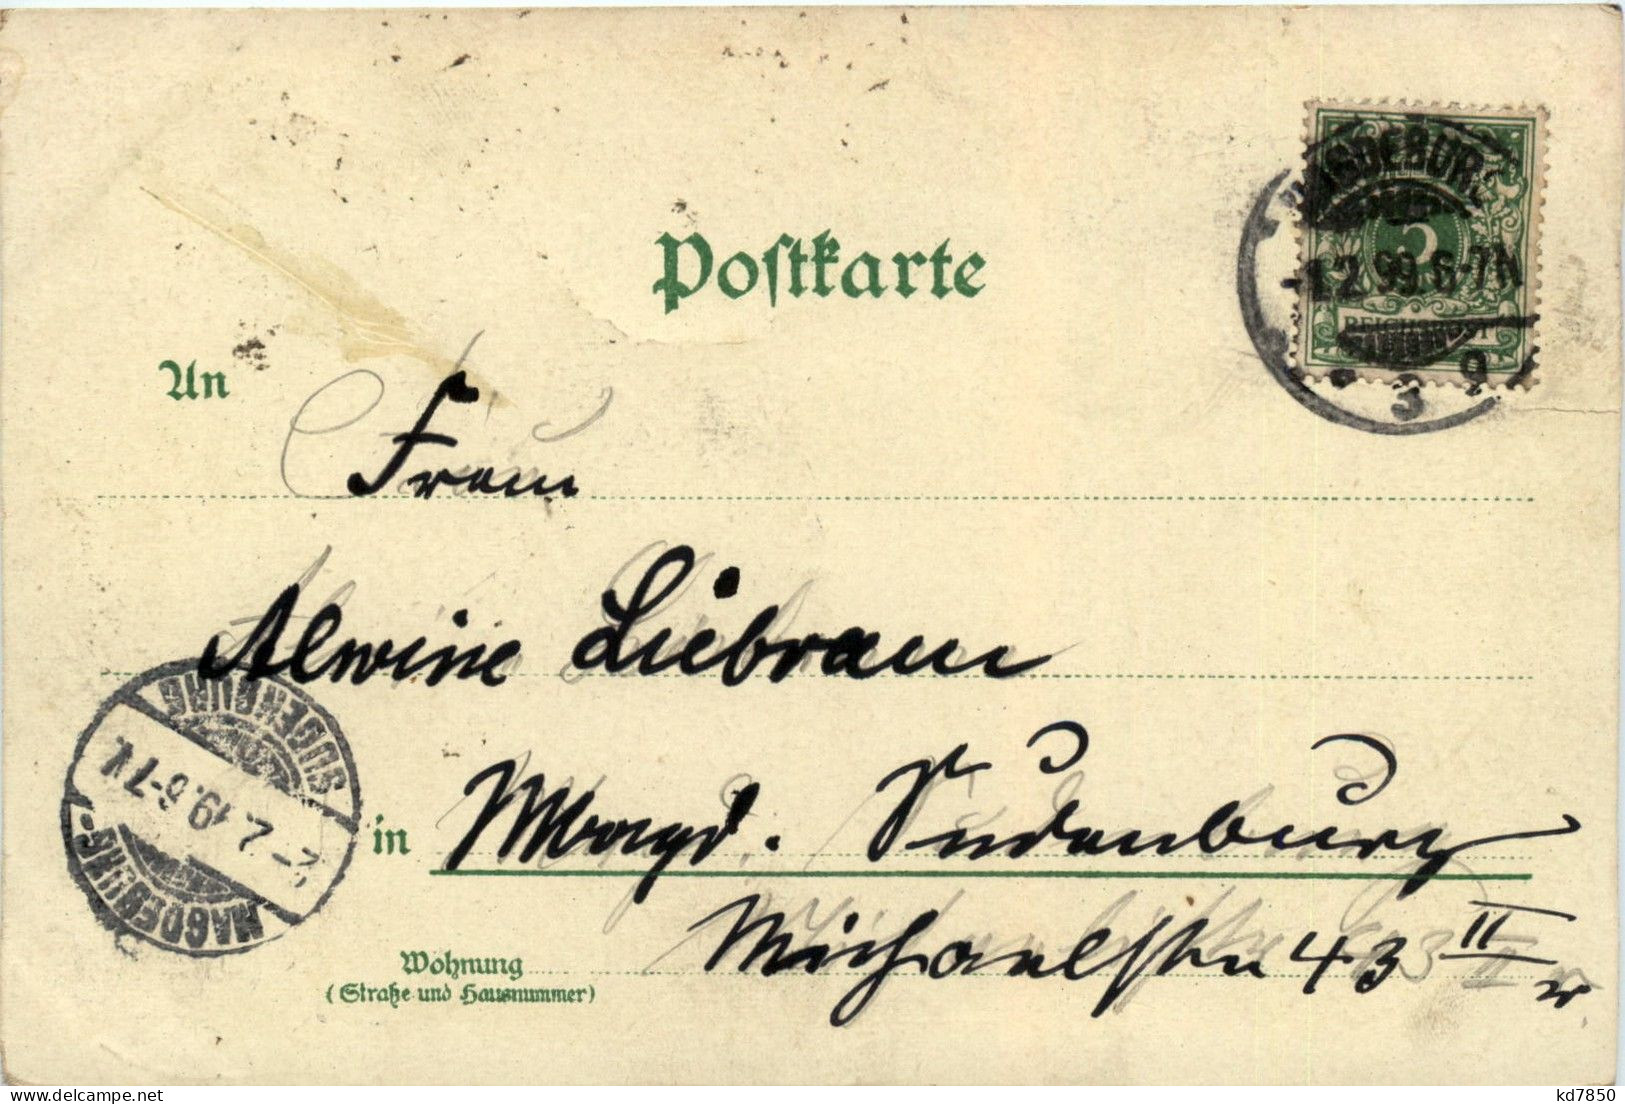 Postkarte
MAGDEBURG
5
1.2.99.6-7N
REICHSPOST
3 q
An
Frau
Alwine Liebram
SUDENBURG
2.2.99.6-7V.
MAGDEBURG-
in Magd. Sudenburg
Michaelstr 43 II
r
Wohnung
(Straße und Hausnummer)
kd7850